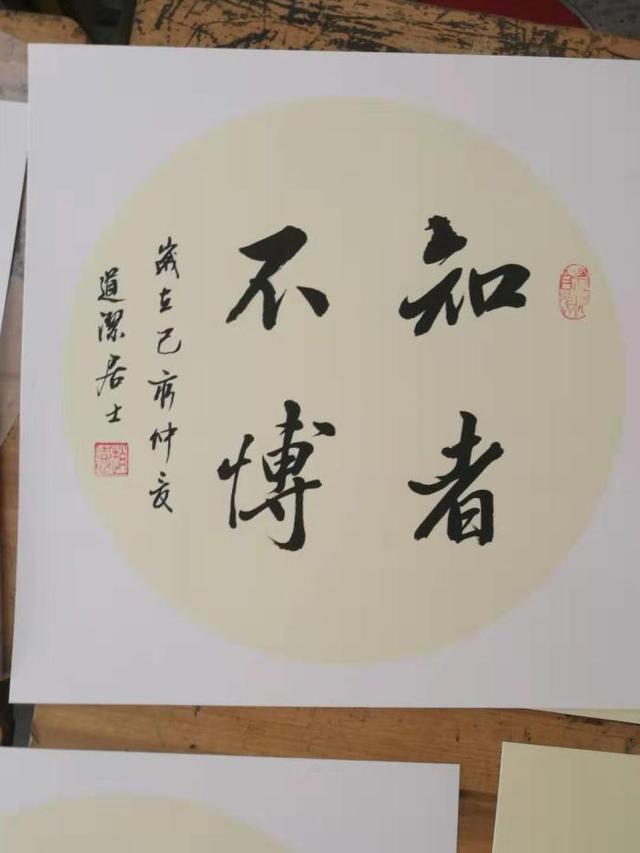 知者
不博
歲在己亥仲夏
道潔居士